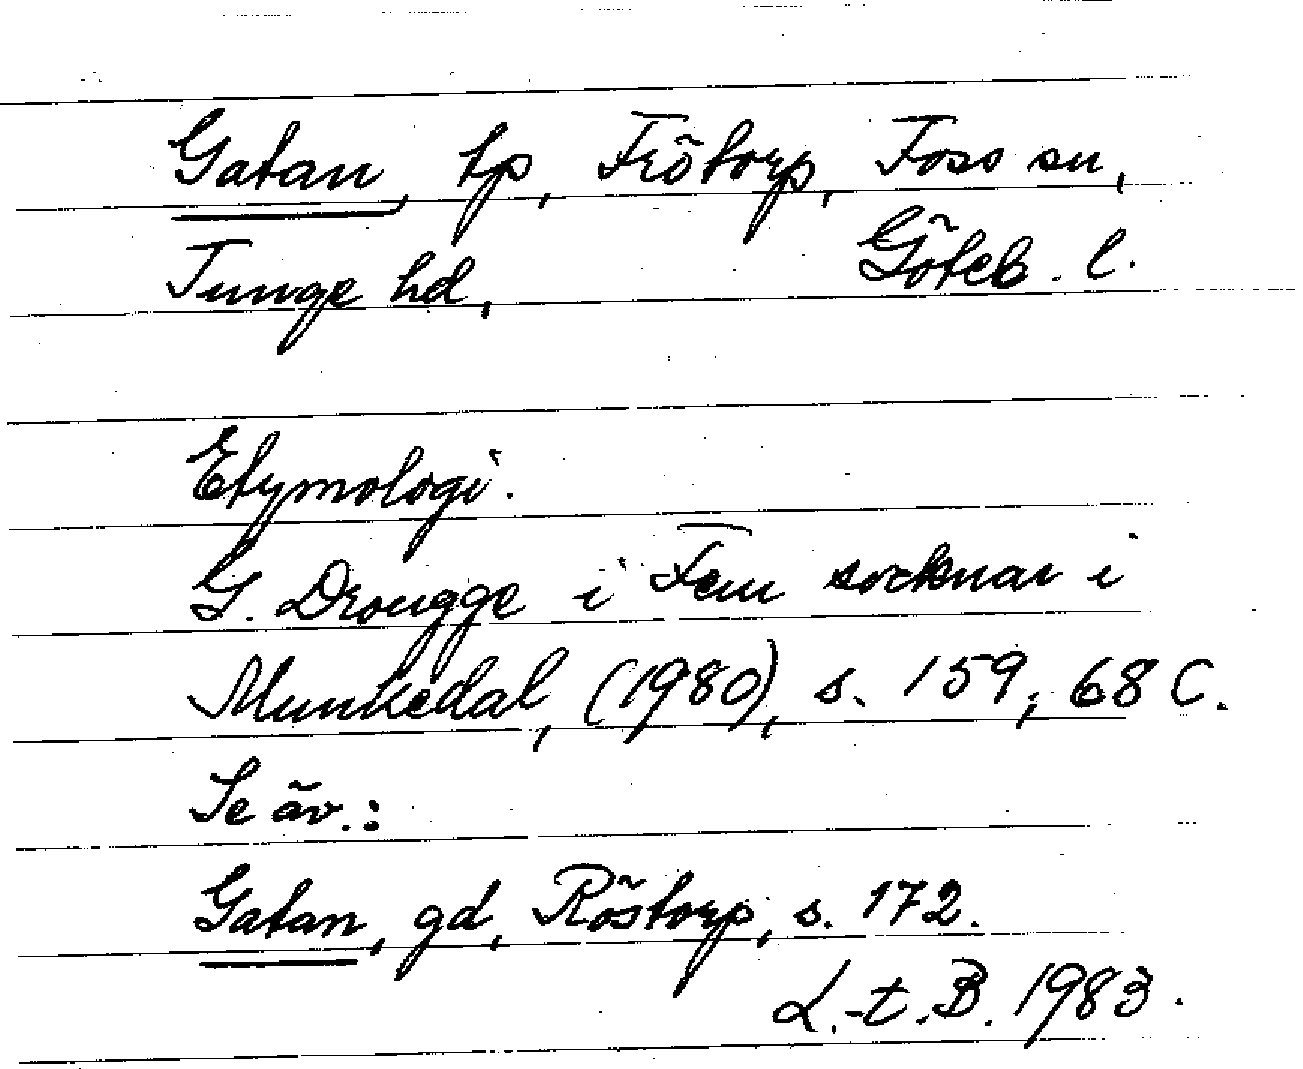 Gatan, tp, Frötorp, Foss sn,
Tunge hd, Göteb. l.
Etymologi.
G. Drougge i Fem socknar i
Munkedal, (1980), s. 159, 68 C.
Se äv.:
Gatan, gd, Röstorp, s. 172.
L.-t. B. 1983.